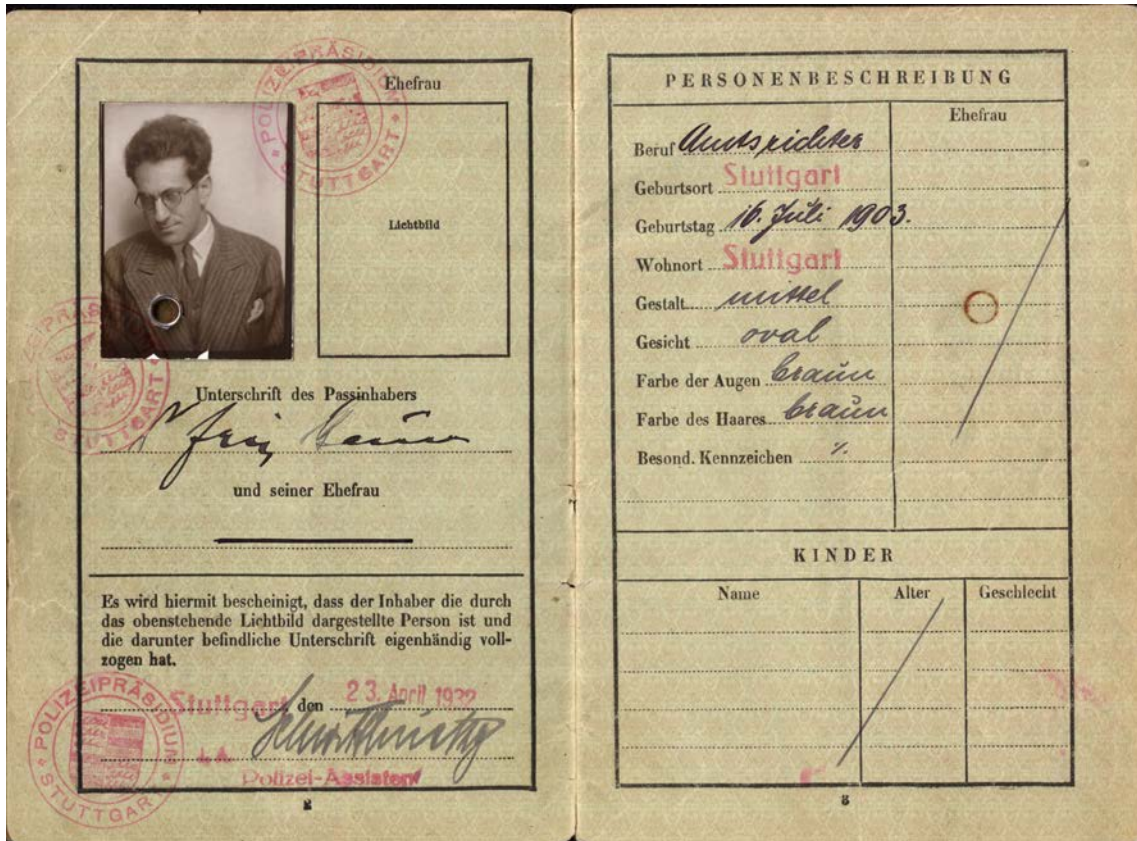 Ehefrau
Lichtbild
POLIZEIPRÄSIDIUM STUTTGART
POLIZEIPRÄSIDIUM STUTTGART
Unterschrift des Passinhabers
und seiner Ehefrau
Es wird hiermit bescheinigt, dass der Inhaber die durch
das obenstehende Lichtbild dargestellte Person ist und
die darunter befindliche Unterschrift eigenhändig voll-
zogen hat.
Stuttgart, den 23. April 1932
Polizei-Assistent
POLIZEIPRÄSIDIUM STUTTGART
PERSONENBESCHREIBUNG
Ehefrau
Beruf Amtsrichter
Geburtsort Stuttgart
Geburtstag 16. Juli 1903.
Wohnort Stuttgart
Gestalt mittel
Gesicht oval
Farbe der Augen braun
Farbe des Haares braun
Besond. Kennzeichen ·/.
KINDER
Name Alter Geschlecht